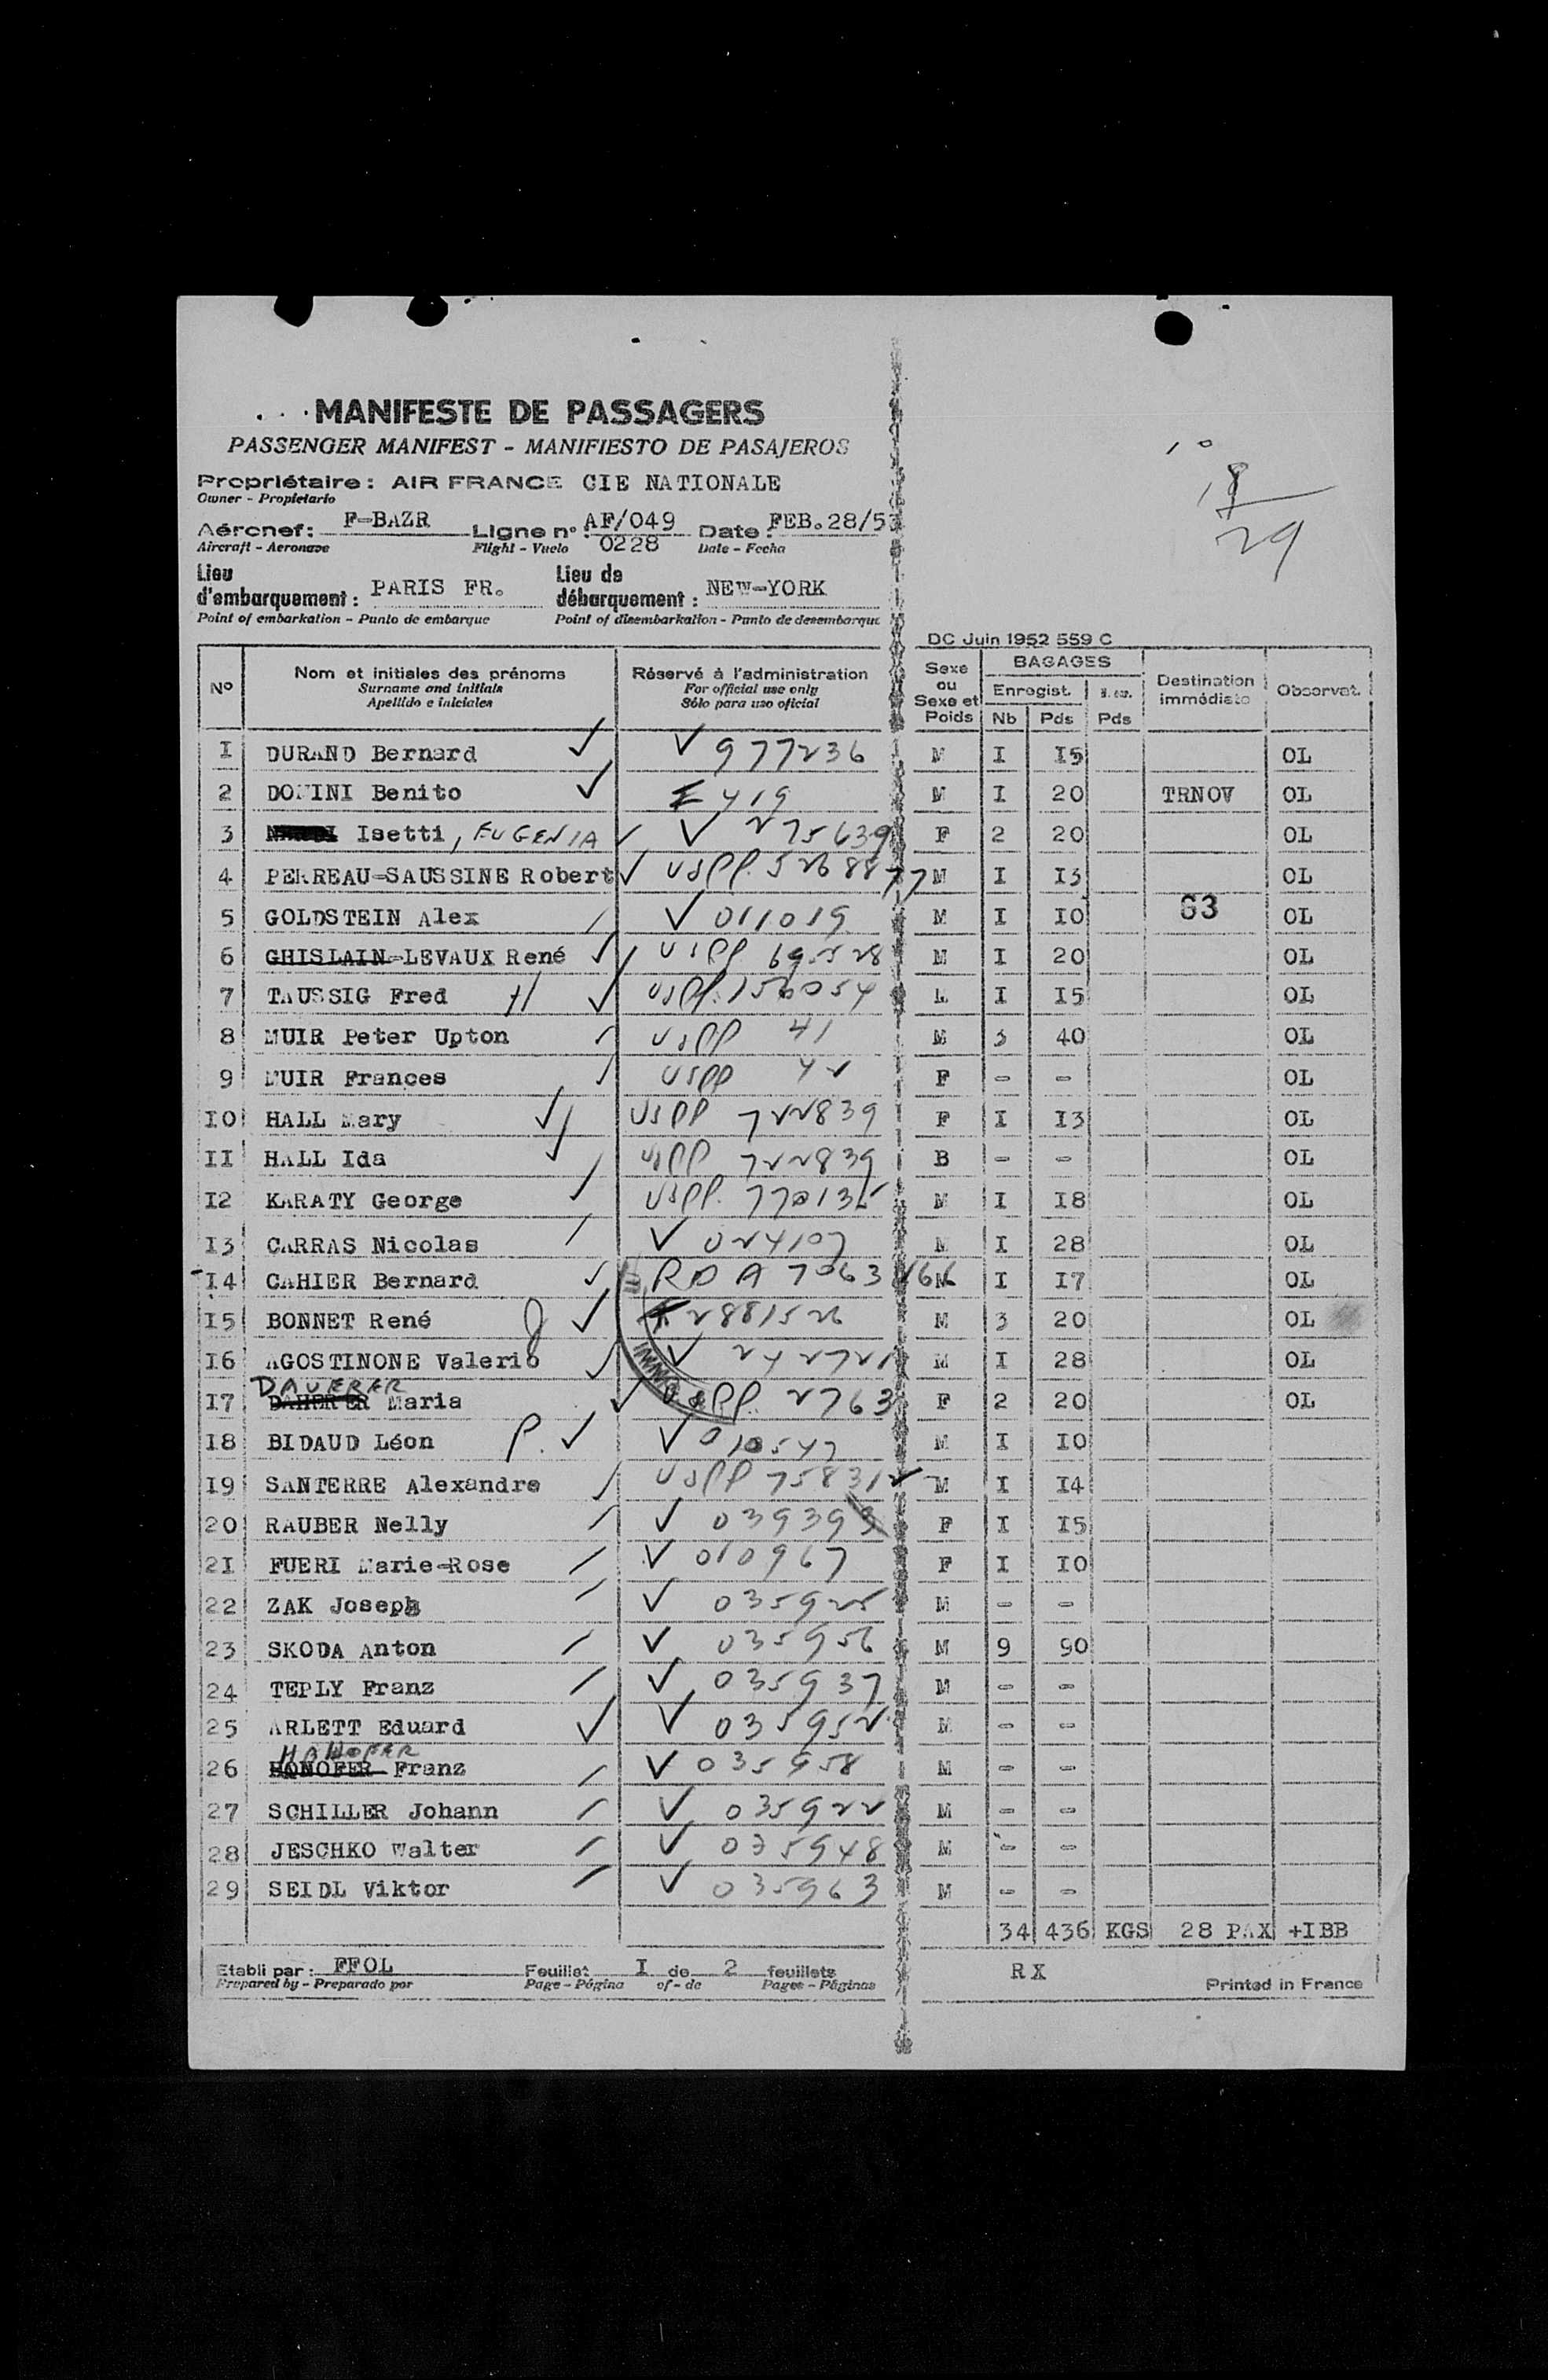 MANIFESTE DE PASSAGERS
PASSENGER MANIFEST - MANIFIESTO DE PASAJEROS
Propriétaire : AIR FRANCE CIE NATIONALE
Owner - Propietario
Aéronef : F-BAZR Ligne n° : AF/049 0228 Date : FEB.28/53
Aircraft - Aeronave Flight - Vuelo Date - Fecha
Lieu d'embarquement : PARIS FR. Lieu de débarquement : NEW-YORK
Point of embarkation - Punto de embarque Point of disembarkation - Punto de desembarque
18
29
DC Juin 1952 559 C
N° Nom et initiales des prénoms Réservé à l'administration Sexe ou Sexe et Poids BAGAGES Destination immédiate Observat.
Surname and initials For official use only Enregist.
Apellido e iniciales Sólo para uso oficial Nb Pds Pds
I DURAND Bernard V 977236 M I I5 OL
2 DOMINI Benito 419 M I 20 TRNOV OL
3 Isetti, EUGENIA V 275639 F 2 20 OL
4 PERREAU-SAUSSINE Robert USPP. 5268877 M I I3 OL
5 GOLDSTEIN Alex V 011019 M I I0 63 OL
6 GHISLAIN-LEVAUX René USPP 69528 M I 20 OL
7 TAUSSIG Fred H USPP. 156054 M I I5 OL
8 MUIR Peter Upton USPP 41 M 3 40 OL
9 MUIR Frances USPP 42 F - - OL
I0 HALL Mary USPP 722839 F I I3 OL
II HALL Ida USPP 722839 B - - OL
I2 KARATY George USPP. 770135 M I I8 OL
I3 CARRAS Nicolas V 024107 M I 28 OL
I4 CAHIER Bernard RDA 7063166 M I I7 OL
I5 BONNET René 2881526 M 3 20 OL
I6 AGOSTINONE Valerio V 242721 M I 28 OL
IMMIG
DAUERER
I7 DAHERER Maria USPP. 2763 F 2 20 OL
I8 BIDAUD Léon P. V 010547 M I I0
I9 SANTERRE Alexandre USPP 758312 M I I4
20 RAUBER Nelly V 039393 F I I5
2I FUERI Marie-Rose V 010967 F I I0
22 ZAK Joseph V 035925 M - -
23 SKODA Anton V 035956 M 9 90
24 TEPLY Franz V 035937 M - -
25 ARLETT Eduard V 035952 M - -
HAHOFER
26 HONOFER Franz V 035958 M - -
27 SCHILLER Johann V 035922 M - -
28 JESCHKO Walter V 035948 M - -
29 SEIDL Viktor V 035963 M - -
34 436 KGS 28 PAX +IBB
Etabli par : FFOL Feuillet I de 2 feuillets RX
Prepared by - Preparado por Page - Página of - de Pages - Páginas Printed in France